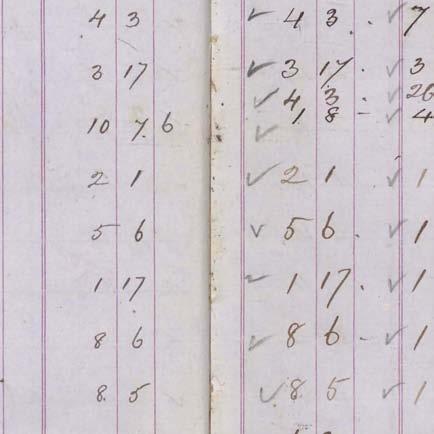 4 3 ✓ 4 3 . ✓ 7
3 17 ✓ 3 17 . ✓ 3
✓ 4 3 . ✓ 26
10 7 6 ✓ 1 8 - ✓ 4
2 1 ✓ 2 1 ✓ 1
5 6 ✓ 5 6 . ✓ 1
1 17 ✓ 1 17 . ✓ 1
8 6 ✓ 8 6 - ✓ 1
8 5 ✓ 8 5 ✓ 1